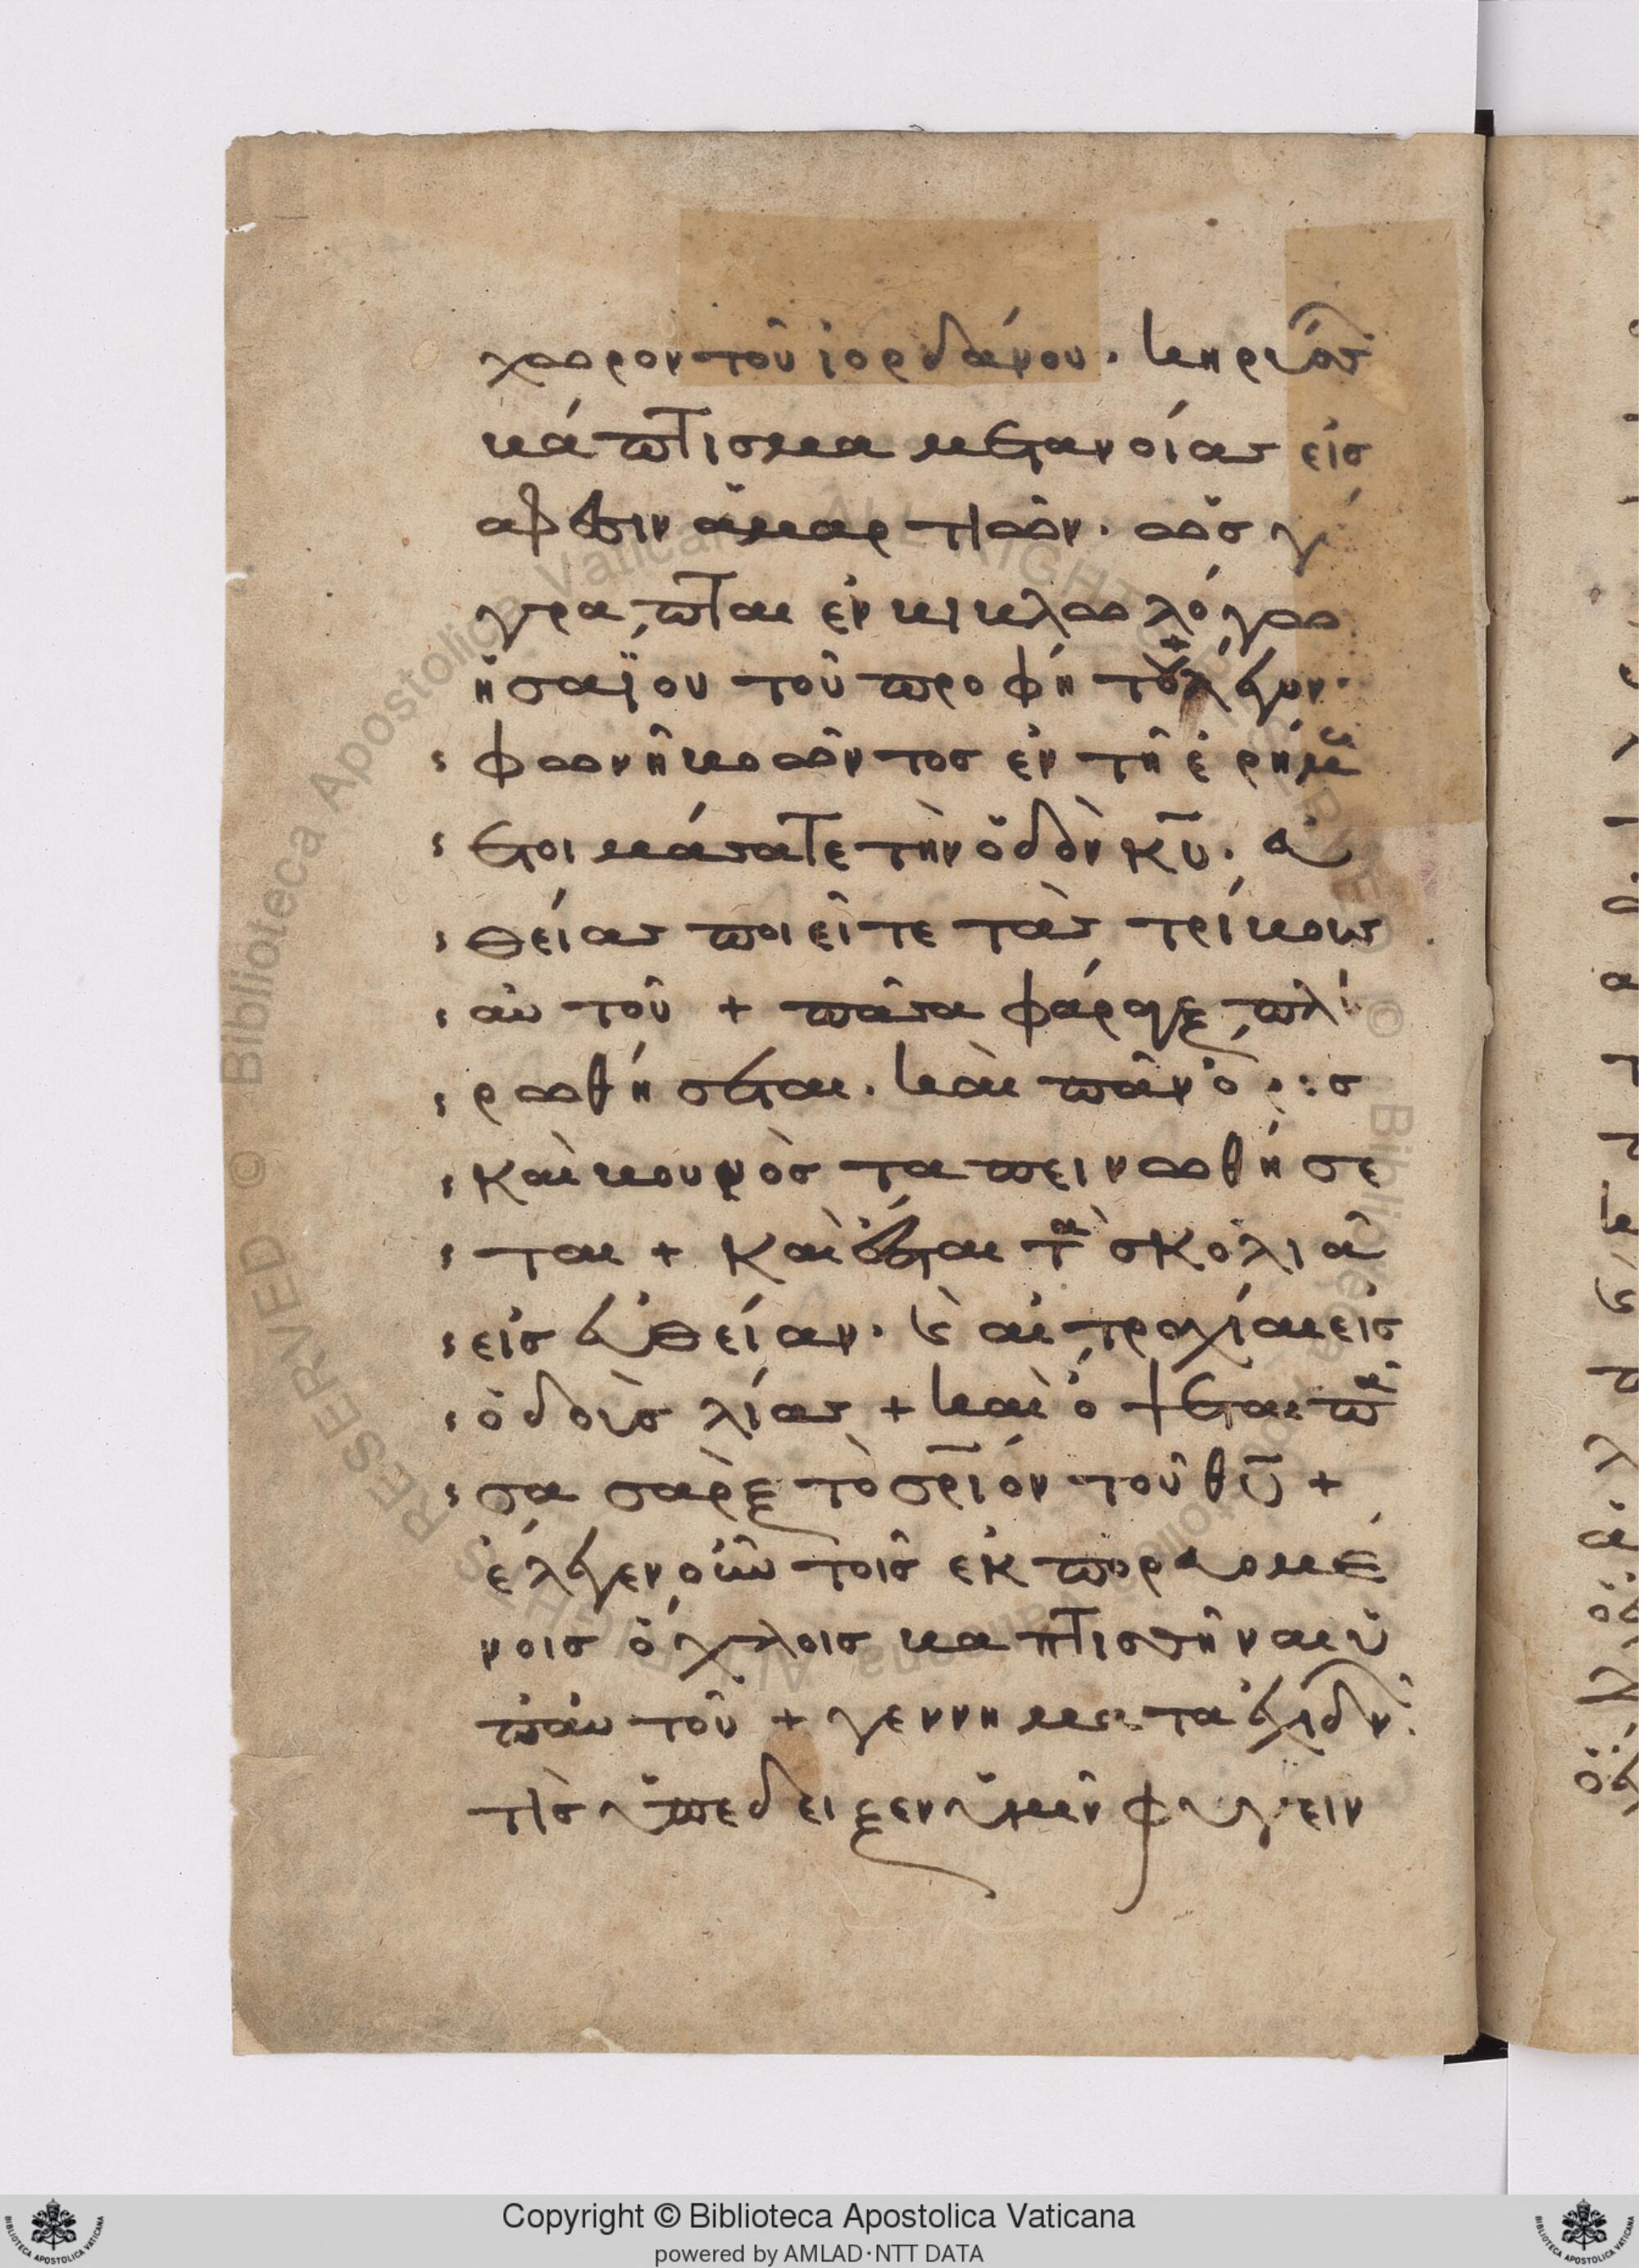 χωρον τοῦ ἰορδάνου· κηρύσσ
βάπτισμα μετανοίας εἰς
αφεσιν ἁμαρτιῶν· ὡς γέ
γραπται ἐν βιβλω λόγω
ἡσαΐου τοῦ προφήτου λέγων·
φωνῆ βοῶντος ἐν τῆ ἐρήμω
ετοιμάσατε τὴν ὁδὸν κ̅υ̅· εὐ
θείας ποιεῖτε τὰς τρίβους
αὐτοῦ + πᾶσα φάραγξ πλη
ρωθήσεται· καὶ πᾶν ὄρος
καὶ βουνὸς ταπεινωθήσε
ται + καὶ ἔσται τὰ σκόλιὰ
εἰς εὐθείαν· καὶ αἱ τραχίαι εἰς
ὁδοὺς λίας + καὶ ὄψεται πᾶ
σα σὰρξ τὸ σ̅ρ̅ιόν τοῦ θ̅υ̅ +
ἔλεγεν οὖν τοῖς ἐκπορευομέ
νοις ὄχλοις βαπτισθῆναι ὑ
π' αὐτοῦ + γεννηματα ἐχιδνῶ
τὶς ὑπεδειξεν ὑμῖν φυγειν
Copyright © Biblioteca Apostolica Vaticana
powered by AMLAD·NTT DATA